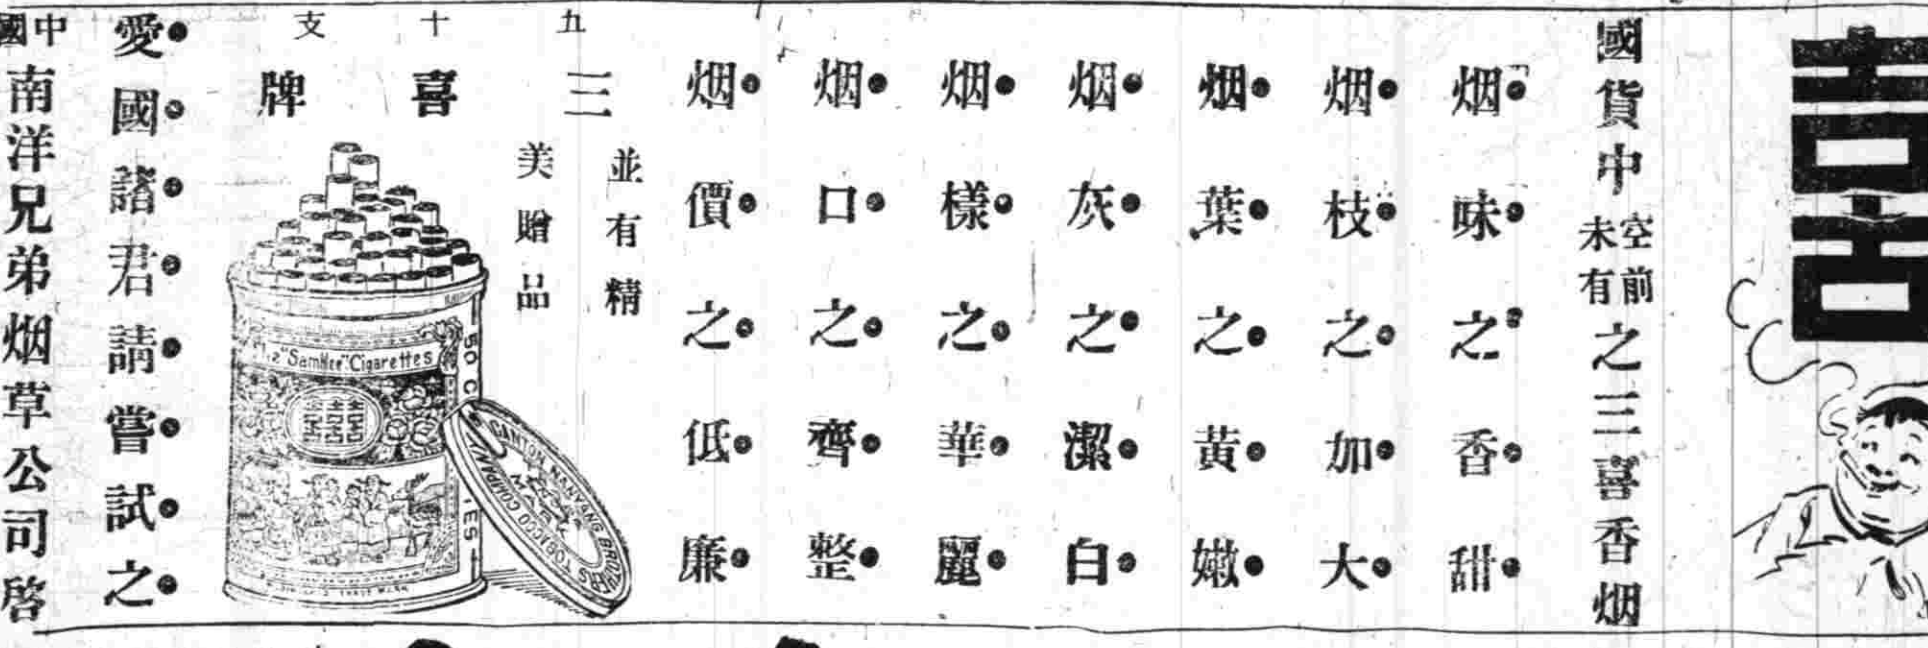 喜
國貨中空前未有之三喜香烟
烟味之香甜
烟枝之加大
烟葉之黃嫩
烟灰之潔白
烟樣之華麗
烟口之齊整
烟價之低廉
五十支
三喜牌
並有精
美贈品
"SamHee" Cigarettes
喜喜喜
50 C
TES
CANTON NANYANG BROTHERS TOBACCO COMPANY
愛國諸君請嘗試之
中國南洋兄弟烟草公司啓